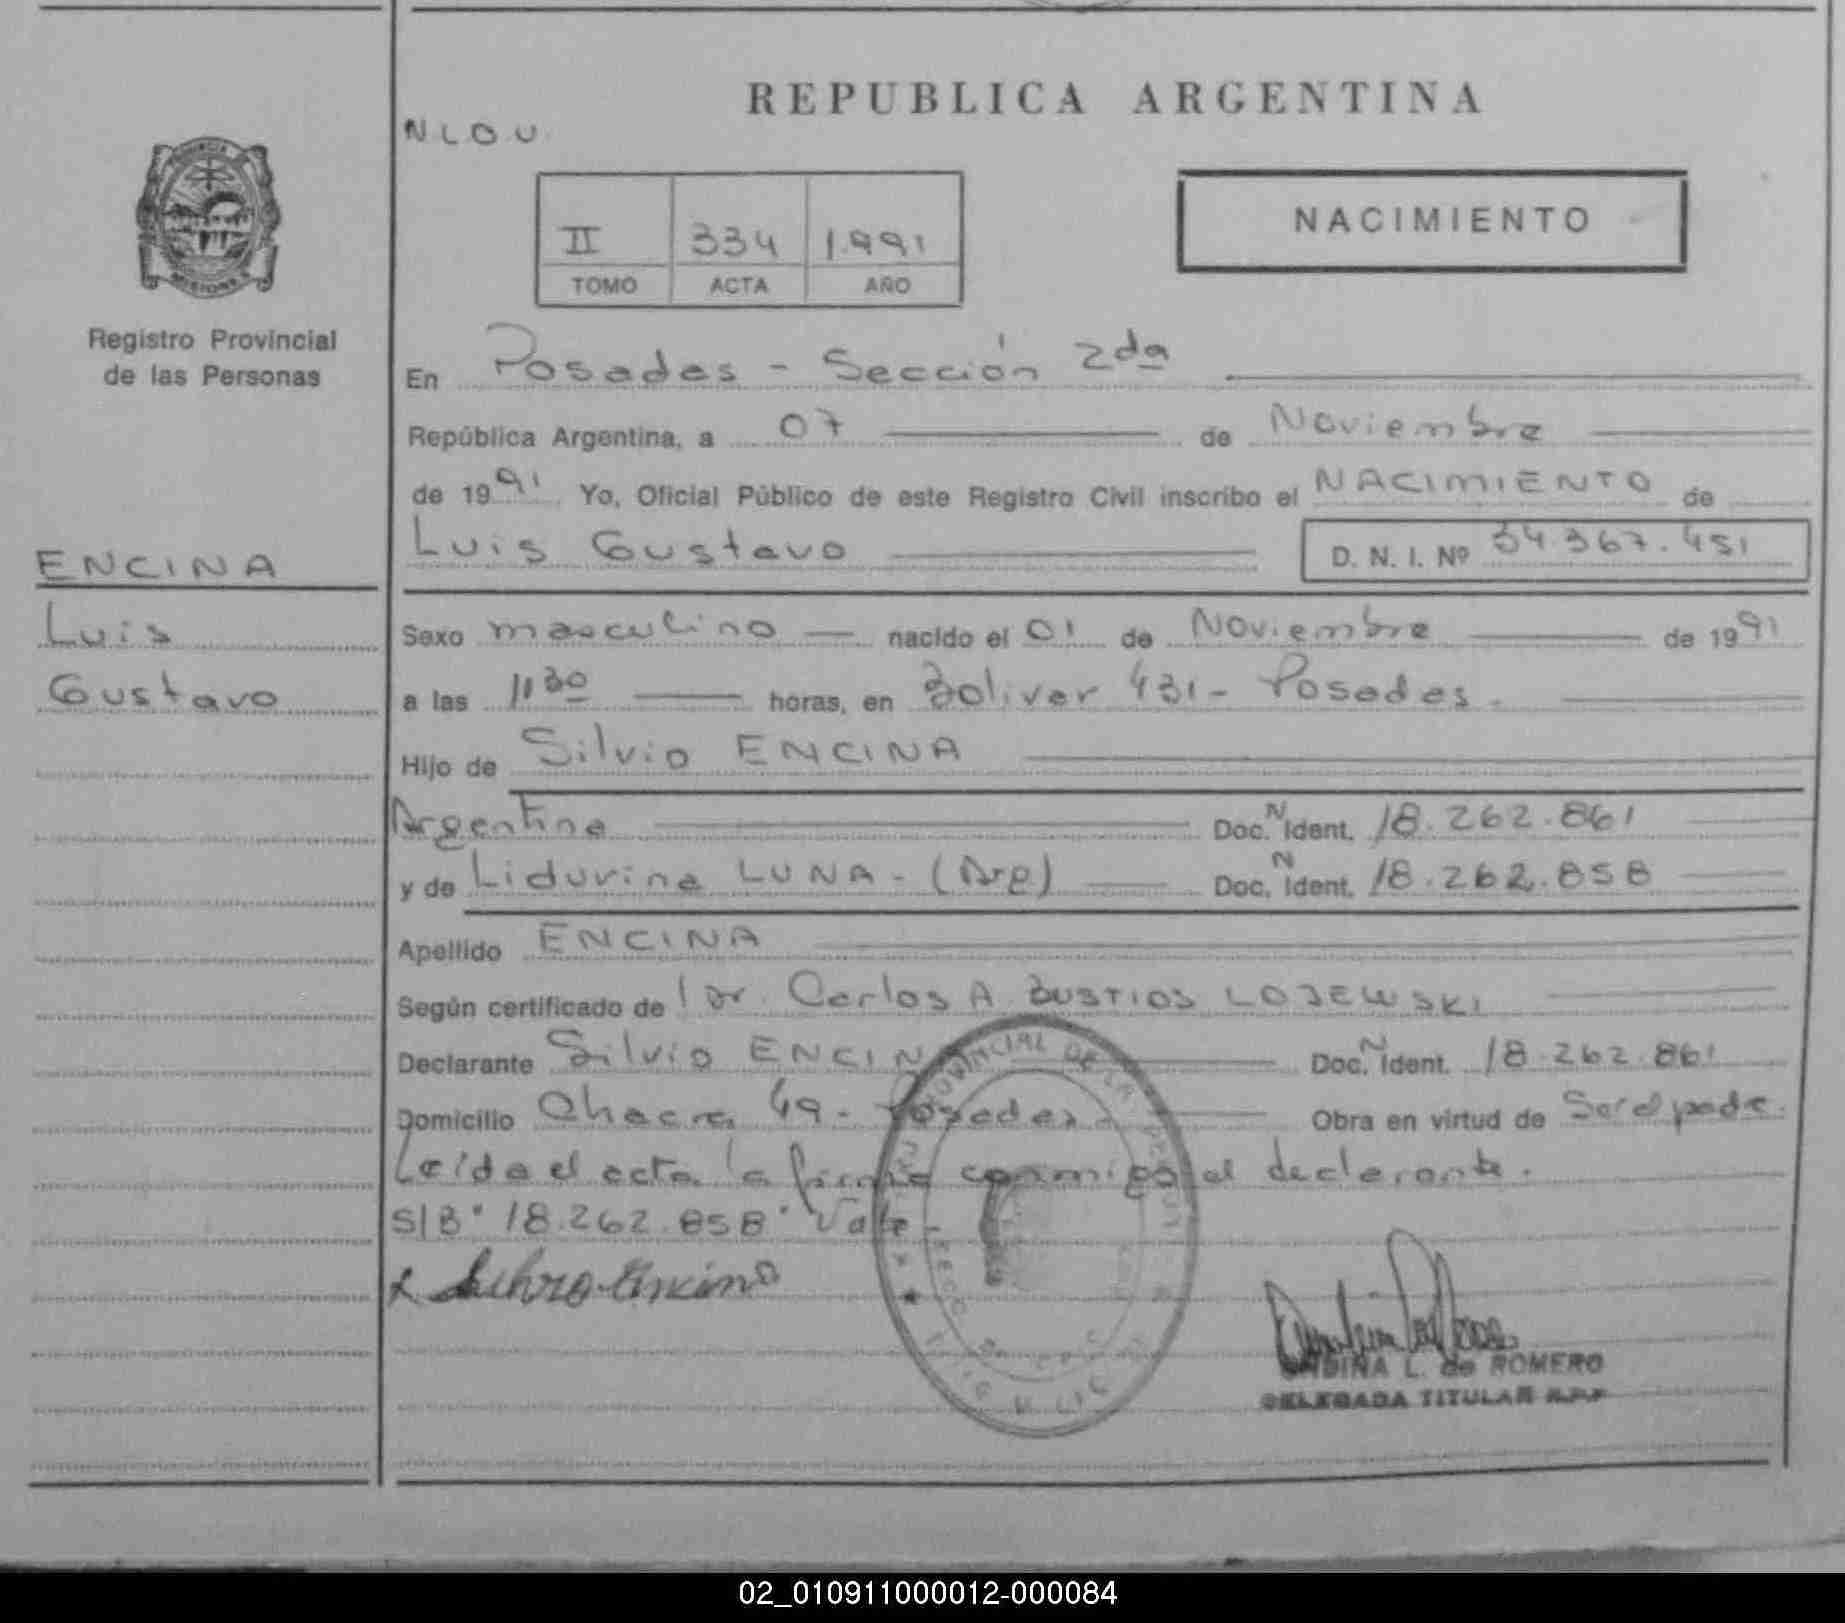 REPUBLICA ARGENTINA
N L O U
NACIMIENTO
II 334 1.991
TOMO ACTA AÑO
Registro Provincial
de las Personas
En Posadas - Sección 2da
República Argentina, a 07 de Noviembre
de 1991 Yo, Oficial Público de este Registro Civil inscribo el NACIMIENTO de
Luis Gustavo D. N. I. Nº 34.367.451
ENCINA
Luis
Gustavo
Sexo masculino nacido el 01 de Noviembre de 1991
a las 11 30 horas, en Bolivar 431 - Posadas.
Hijo de Silvio ENCINA
Argentina Doc. N Ident. 18.262.861
y de Lidurina LUNA - (Arg) Doc. N Ident. 18.262.858
Apellido ENCINA
Según certificado de Dr. Carlos A BUSTIOS LOJEWSKI
Declarante Silvio ENCINA Doc. N Ident. 18.262.861
Domicilio Chacra 49 - Posadas - Obra en virtud de Ser el padre.
Leída el acta la firma conmigo el declarante.
S/B "18.262.858" Vale -
x Silvio Encina
L. de ROMERO
DELEGADA TITULAR R.P.P
02_010911000012-000084